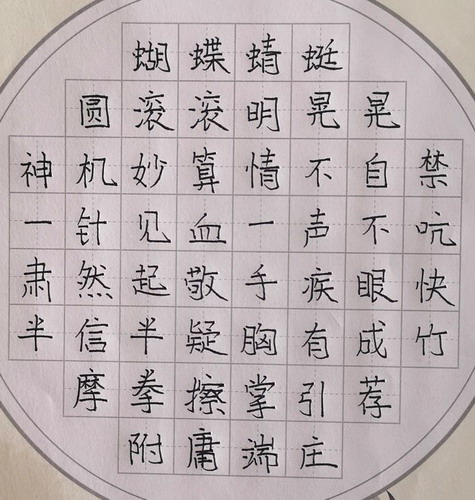 蝴蝶蜻蜓
圆滚滚明晃晃
神机妙算情不自禁
一针见血一声不吭
肃然起敬手疾眼快
半信半疑胸有成竹
摩拳擦掌引荐
附庸端庄